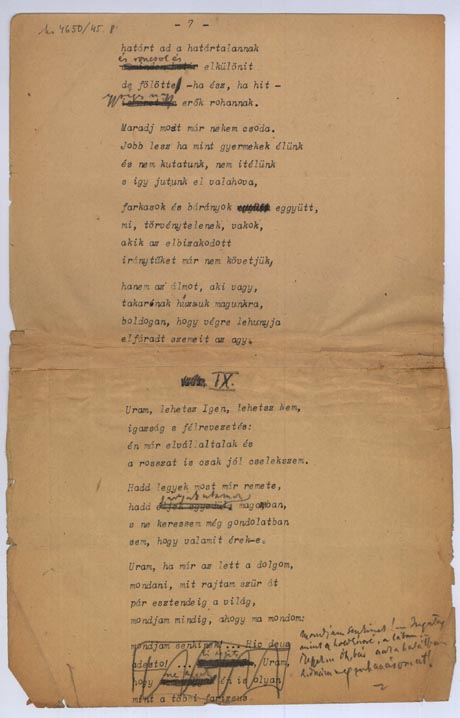 4650/45. 8
- 7 -
határt ad a határtalannak
és
elkülönit
de fölötte -ha ész, ha hit -
erők rohannak.
Maradj most már nekem csoda.
Jobb lesz ha mint gyermekek élünk
és nem kutatunk, nem itélünk
s igy jutunk el valahova,
farkasok és bárányok együtt eggyütt,
mi, törvénytelenek, vakok,
akik az elbizakodott
iránytűket már nem követjük,
hanem az álmot, aki vagy,
takarónak húzsuk magunkra,
boldogan, hogy végre lehunyja
elfáradt szemeit az agy.
IX.
Uram, lehetsz Igen, lehetsz Nem,
igazság s félrevezetés:
én már elvállaltalak és
a rosszat is csak jól cselekszem.
Hadd legyek most már remete,
hadd éljek egyedül magamban,
s ne keressem még gondolatban
sem, hogy valamit érek-e.
Uram, ha már az lett a dolgom,
mondani, mit rajtam szűr át
pár esztendeig a világ,
mondjam mindig, ahogy ma mondom:
mondjam senkinek! ... Hic deus
adesto! ... Uram,
hogy én is olyan
mint a többi farizeus
Mondjam senkinek! —
mint a